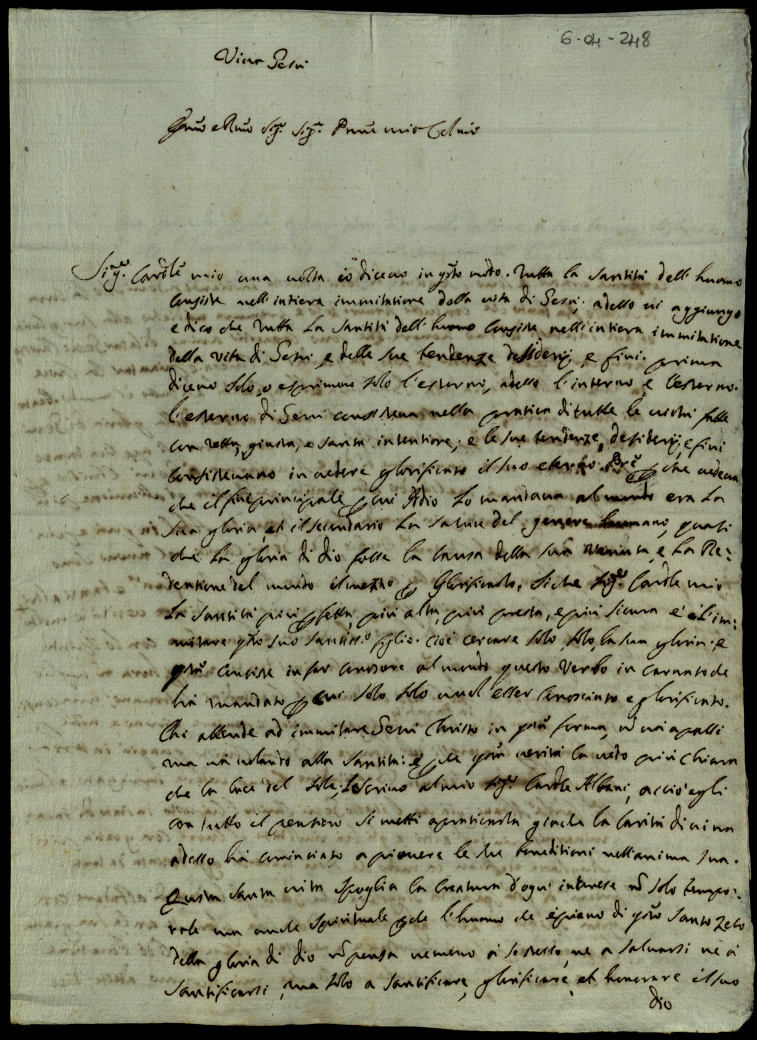 6-04-248
Viva Gesù
Sig.r Card.le mio una volta io dicevo in q.sto modo. Tutta la santità dell'huomo
consiste nell'intiera immitatione della vita di Gesù; adesso vi aggiungo
e dico che tutta la santità dell'huomo consiste nell'intiera immitatione
della vita di Gesù, e delle sue tendenze desiderij, e fini. prima
dicevo solo, o esprimevo solo l'esterno, adesso l'interno, e l'esterno.
l'esterno di Gesù consisteva nella pratica di tutte le virtù fatte
con retta, giusta, e santa intentione; e le sue tendenze, desiderij, e fini
consistevano in vedere glorificato il suo eterno P.re che vedeva
che il fine principale p cui Iddio lo mandava al mondo era la
sua gloria, et il secondario la salute del genere humano, quasi
che la gloria di dio fosse la causa della sua venuta, e la Re:
dentione del mondo il mezzo p glorificarlo. Si che Sig.r Card.le mio
la santità più pfetta, più alta, più presta, e più sicura è l'im:
mitare q.sto suo santiss.o figlio. cioè cercare solo, solo, la sua gloria. e
q.sta consiste in far conoscere al mondo questo Verbo incarnato che
ha mandato p cui solo solo vuol esser conosciuto e glorificato.
Chi attende ad immitare Gesù Christo in q.sta forma, nò và a passi
ma và volando alla santità: e pche q.sta verità la vedo più chiara
che la luce del sole, lo scrivo al mio Sig.r Card.le Albani, acciò egli
con tutto il pensiero si metti a praticarla giache la Carità divina
adesso ha cominciato a piovere le sue beneditioni nell'anima sua.
Questa santa vita spoglia la creatura d'ogni interesse nò solo tempo:
rale ma anche spirituale pche l'huomo che è pieno di q.sto santo zelo
della gloria di dio nò pensa nemeno a se stesso, ne a salvarsi ne a
santificarsi, ma solo a santificare, glorificare, et honorare il suo
dio